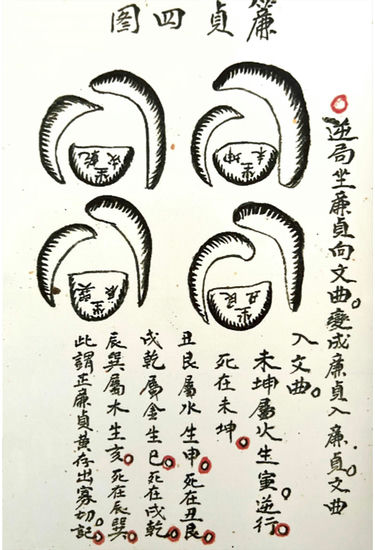 廉貞四图
坐坤未
坐乾戌
坐艮丑
坐巽辰
逆局坐廉貞向文曲。變成廉貞入廉。貞文曲
入文曲。
未坤屬火生寅。逆行。
死在未坤。
丑艮屬水生申。死在丑艮。
戌乾屬金生巳。死在戌乾。
辰巽屬木生亥。死在辰巽。
此謂正廉貞黄存出寡切記。